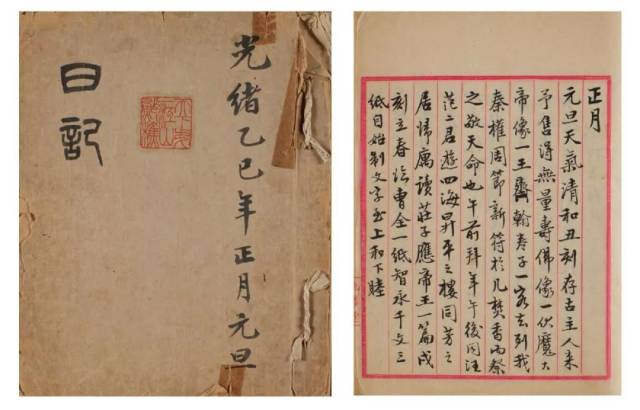 光緒乙巳年正月元旦
日記
正月
元旦天氣清和丑刻存古主人来
予售得無量壽佛像一伏魔大
帝像一王齊翰卷子一客去列我
秦權周節新符於几焚香而祭
之敬天命也午前拜年午後同汪
范二君遊四海昇平之樓同芳之
居歸寓讀莊子應帝王一篇戌
刻立春臨曹全一紙智永千文三
紙自始制文字至上和下睦